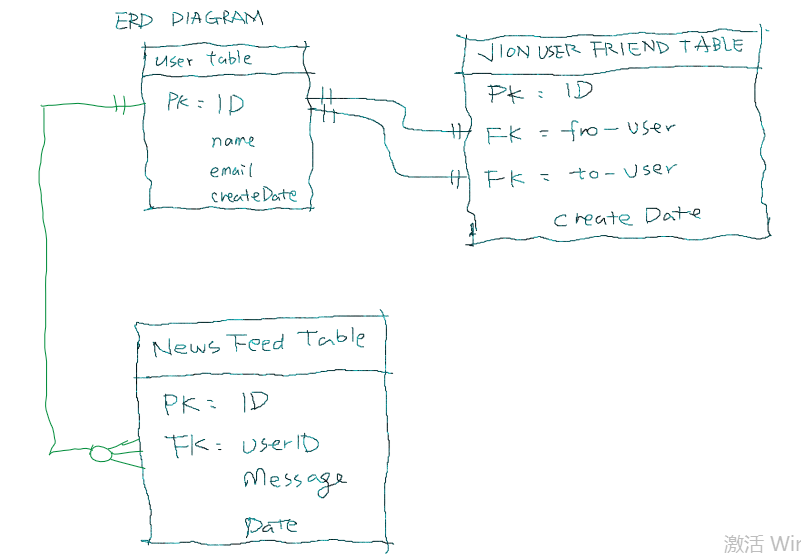 ERD DIAGRAM
user table
PK = ID
name
email
createDate
JION USER FRIEND TABLE
PK = ID
FK = fro-user
FK = to-user
Create Date
News Feed Table
PK = ID
FK = userID
Message
Date
激活 Win